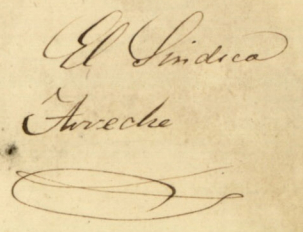 El Sindico
Arreche